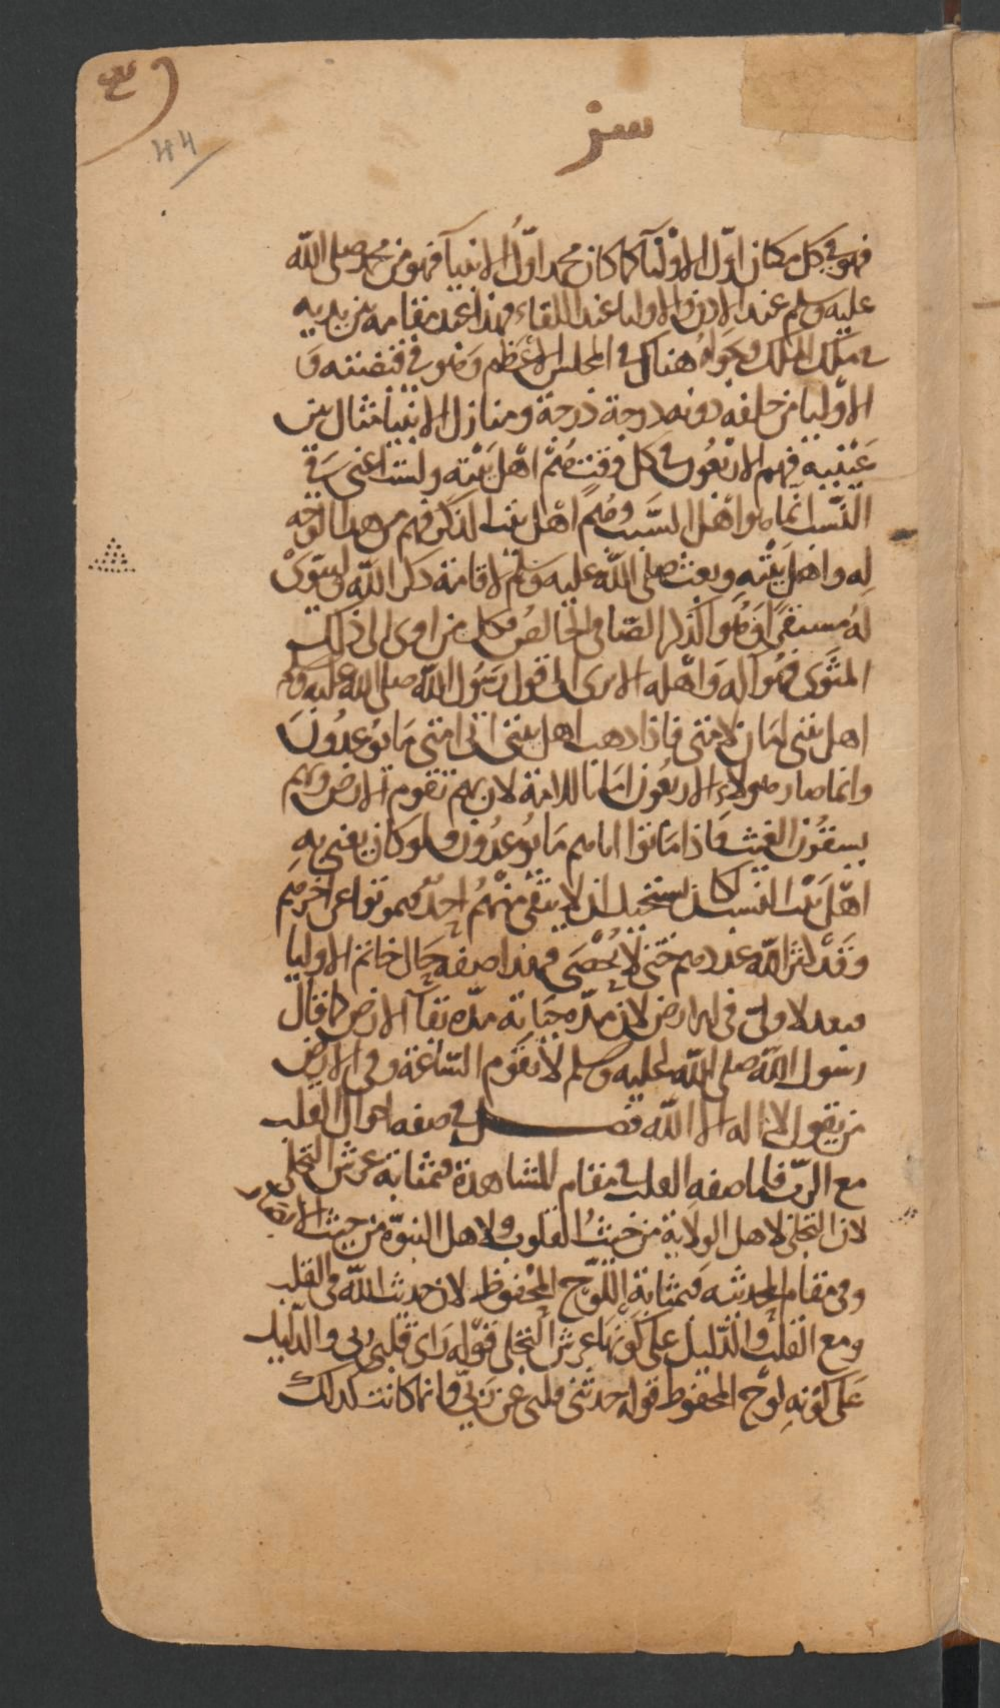 44
سز
فهو في كل مكان اول الاوليآ كما كان محمد اولُ الانبيآ فهو من محمد صلى الله
عليه وسلم عند الاذن والاوليا عند اللقاء فهذا عند مقامه بين يديه
في ملك الملك ونجواه هناك في المجلس الاعظم وهو في قبضته و
الاوليا من خلفه دونه درجة درجة ومنازل الانبيا مثال بين
عينيه فهم الاربعون في كل وقت هم اهل بيته ولست اعني في
النسب انما هو اهل النسب وهم اهل بيت الذكر فهم من هذا الوجه
له واهل بيته وبعث صلى الله عليه وسلم لاقامة ذكر الله وليبوئ
له مستقرا وهو الذكر الصافي الخالص فكل من اوى الى ذلك
المثوى فهو آله واهله الا ترى الى قول رسول الله صلى الله عليه وسلم
اهل بيتي امان لامتي فاذا ذهب اهل بيتي اتى امتي ما يوعدون
وانما صار هولاء الاربعون امانا للامة لان بهم تقوم الارض وبهم
يسقون الغيث فاذا ماتوا اتاهم ما يوعدون ولو كان يعني به
اهل بيت النسب لكان يستحيل ان لا يبقى منهم احد فيموتوا عن اخرهم
وقد كثر الله عددهم حتى لا يُحصى فهذا صفة حال خاتم الاوليا
فبعد لا ولي في الارض لان مدة حياته مدة بقآ الارض كما قال
رسول الله صلى الله عليه وسلم لا تقوم الساعة وفي الارض
من يقول لا اله الا الله فصل في صفه احوال القلب
مع الرب فاما صفه القلب في مقام المشاهدة فبمثابة عرش التجلي
لان التجلي لاهل الولاية من حيثُ القلوب ولاهل النبوة من حيث الابصار
وفي مقام المحدثيه فبمثابة اللوح المحفوظ لان حديث الله في القلب
ومع القلب والدليل على كونها عرش التجلي قوله راى قلبي ربي والدليل
على كونه لوح المحفوظ قوله حدثني قلبي عن ربي وانما كانت كذلك